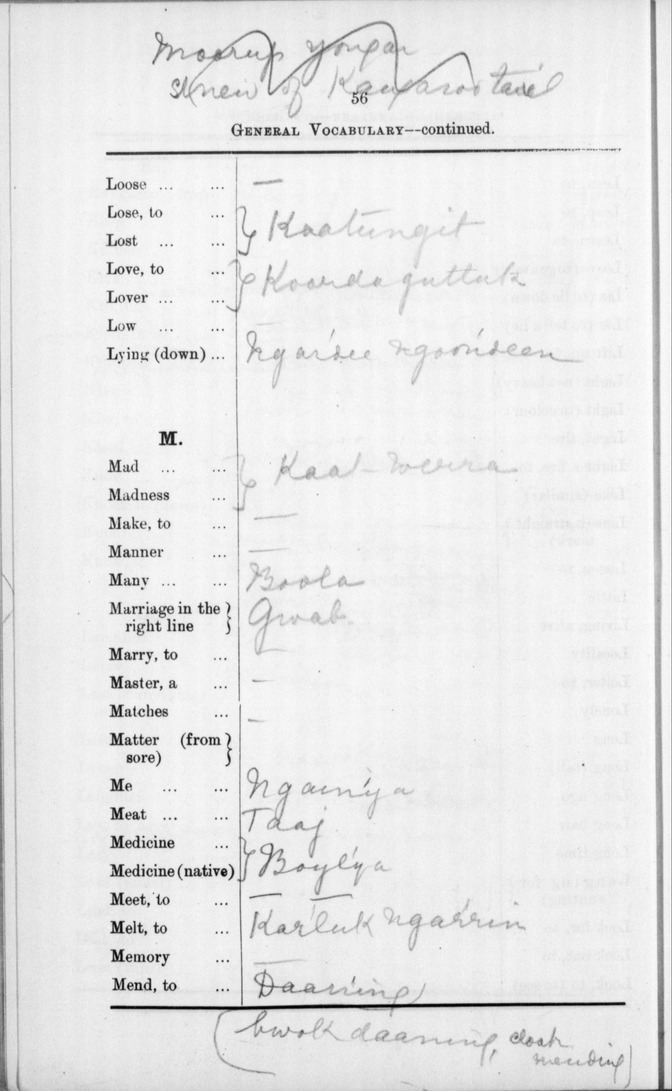 Moorup yongar
sinew of Kangaroo tail
56
GENERAL VOCABULARY—continued.
Loose ... ... —
Lose, to ... } Kaatungit
Lost ... ...
Love, to ... } Koorda guttuk
Lover ... ...
Low ... ... —
Lying (down) ... Ngardee ngoondeen
M.
Mad ... ... } Kaat-werra
Madness ...
Make, to ... —
Manner ... —
Many ... ... Boola
Marriage in the } Gwab.
right line
Marry, to ... —
Master, a ... —
Matches ... —
Matter (from }
sore)
Me ... ... Ngain'ya
Meat ... ... Taaj
Medicine ... } Boyl'ya
Medicine (native)
Meet, to ... — —
Melt, to ... Kar'luk ngarrin
Memory ... —
Mend, to ... Daaning)
(bwok daaning, cloak
mending)